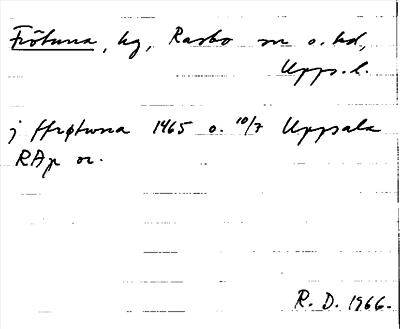 Frötuna, hg, Rasbo sn o. hd,
Upps. l.
j ffrøtwna 1465 o. 10/7 Uppsala
RAp or.
R. D. 1966.